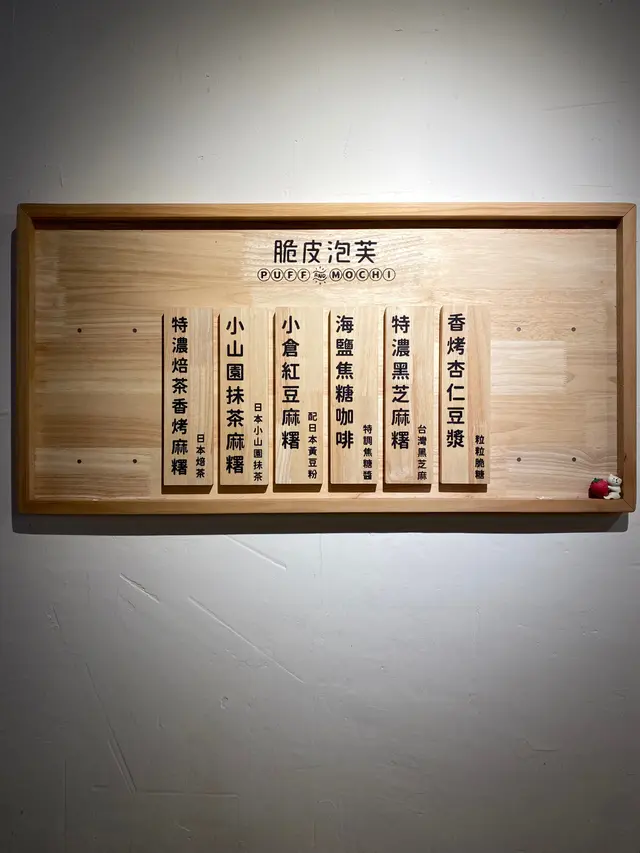 脆皮泡芙
PUFF AND MOCHI
香烤杏仁豆漿
粒粒脆糖
特濃黑芝麻糬
台灣黑芝麻
海鹽焦糖咖啡
特調焦糖醬
小倉紅豆麻糬
配日本黃豆粉
小山園抹茶麻糬
日本小山園抹茶
特濃焙茶香烤麻糬
日本焙茶